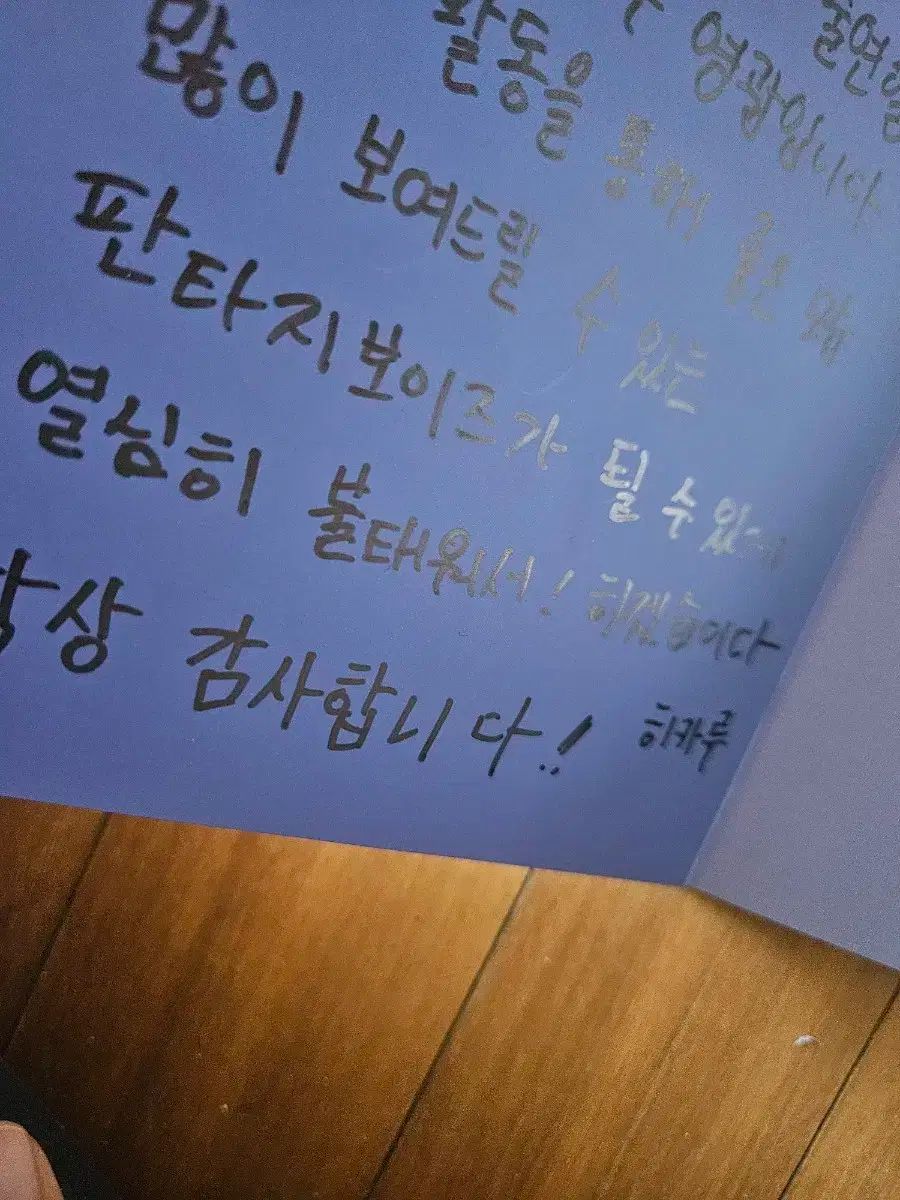 영광입니다
활동을 통해 좋은
많이 보여드릴 수 있는
판타지보이즈가 될 수 있
열심히 불태워서! 하겠습니다
상 감사합니다! 히카루